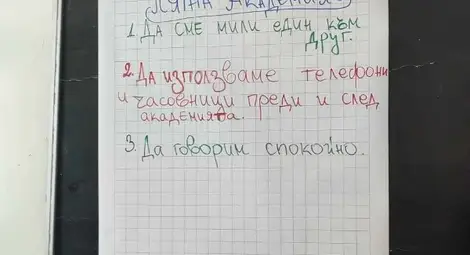 Лятна Академия
1. Да сме мили един към
друг.
2. Да използваме телефони
и часовници преди и след
академията.
3. Да говорим спокойно.